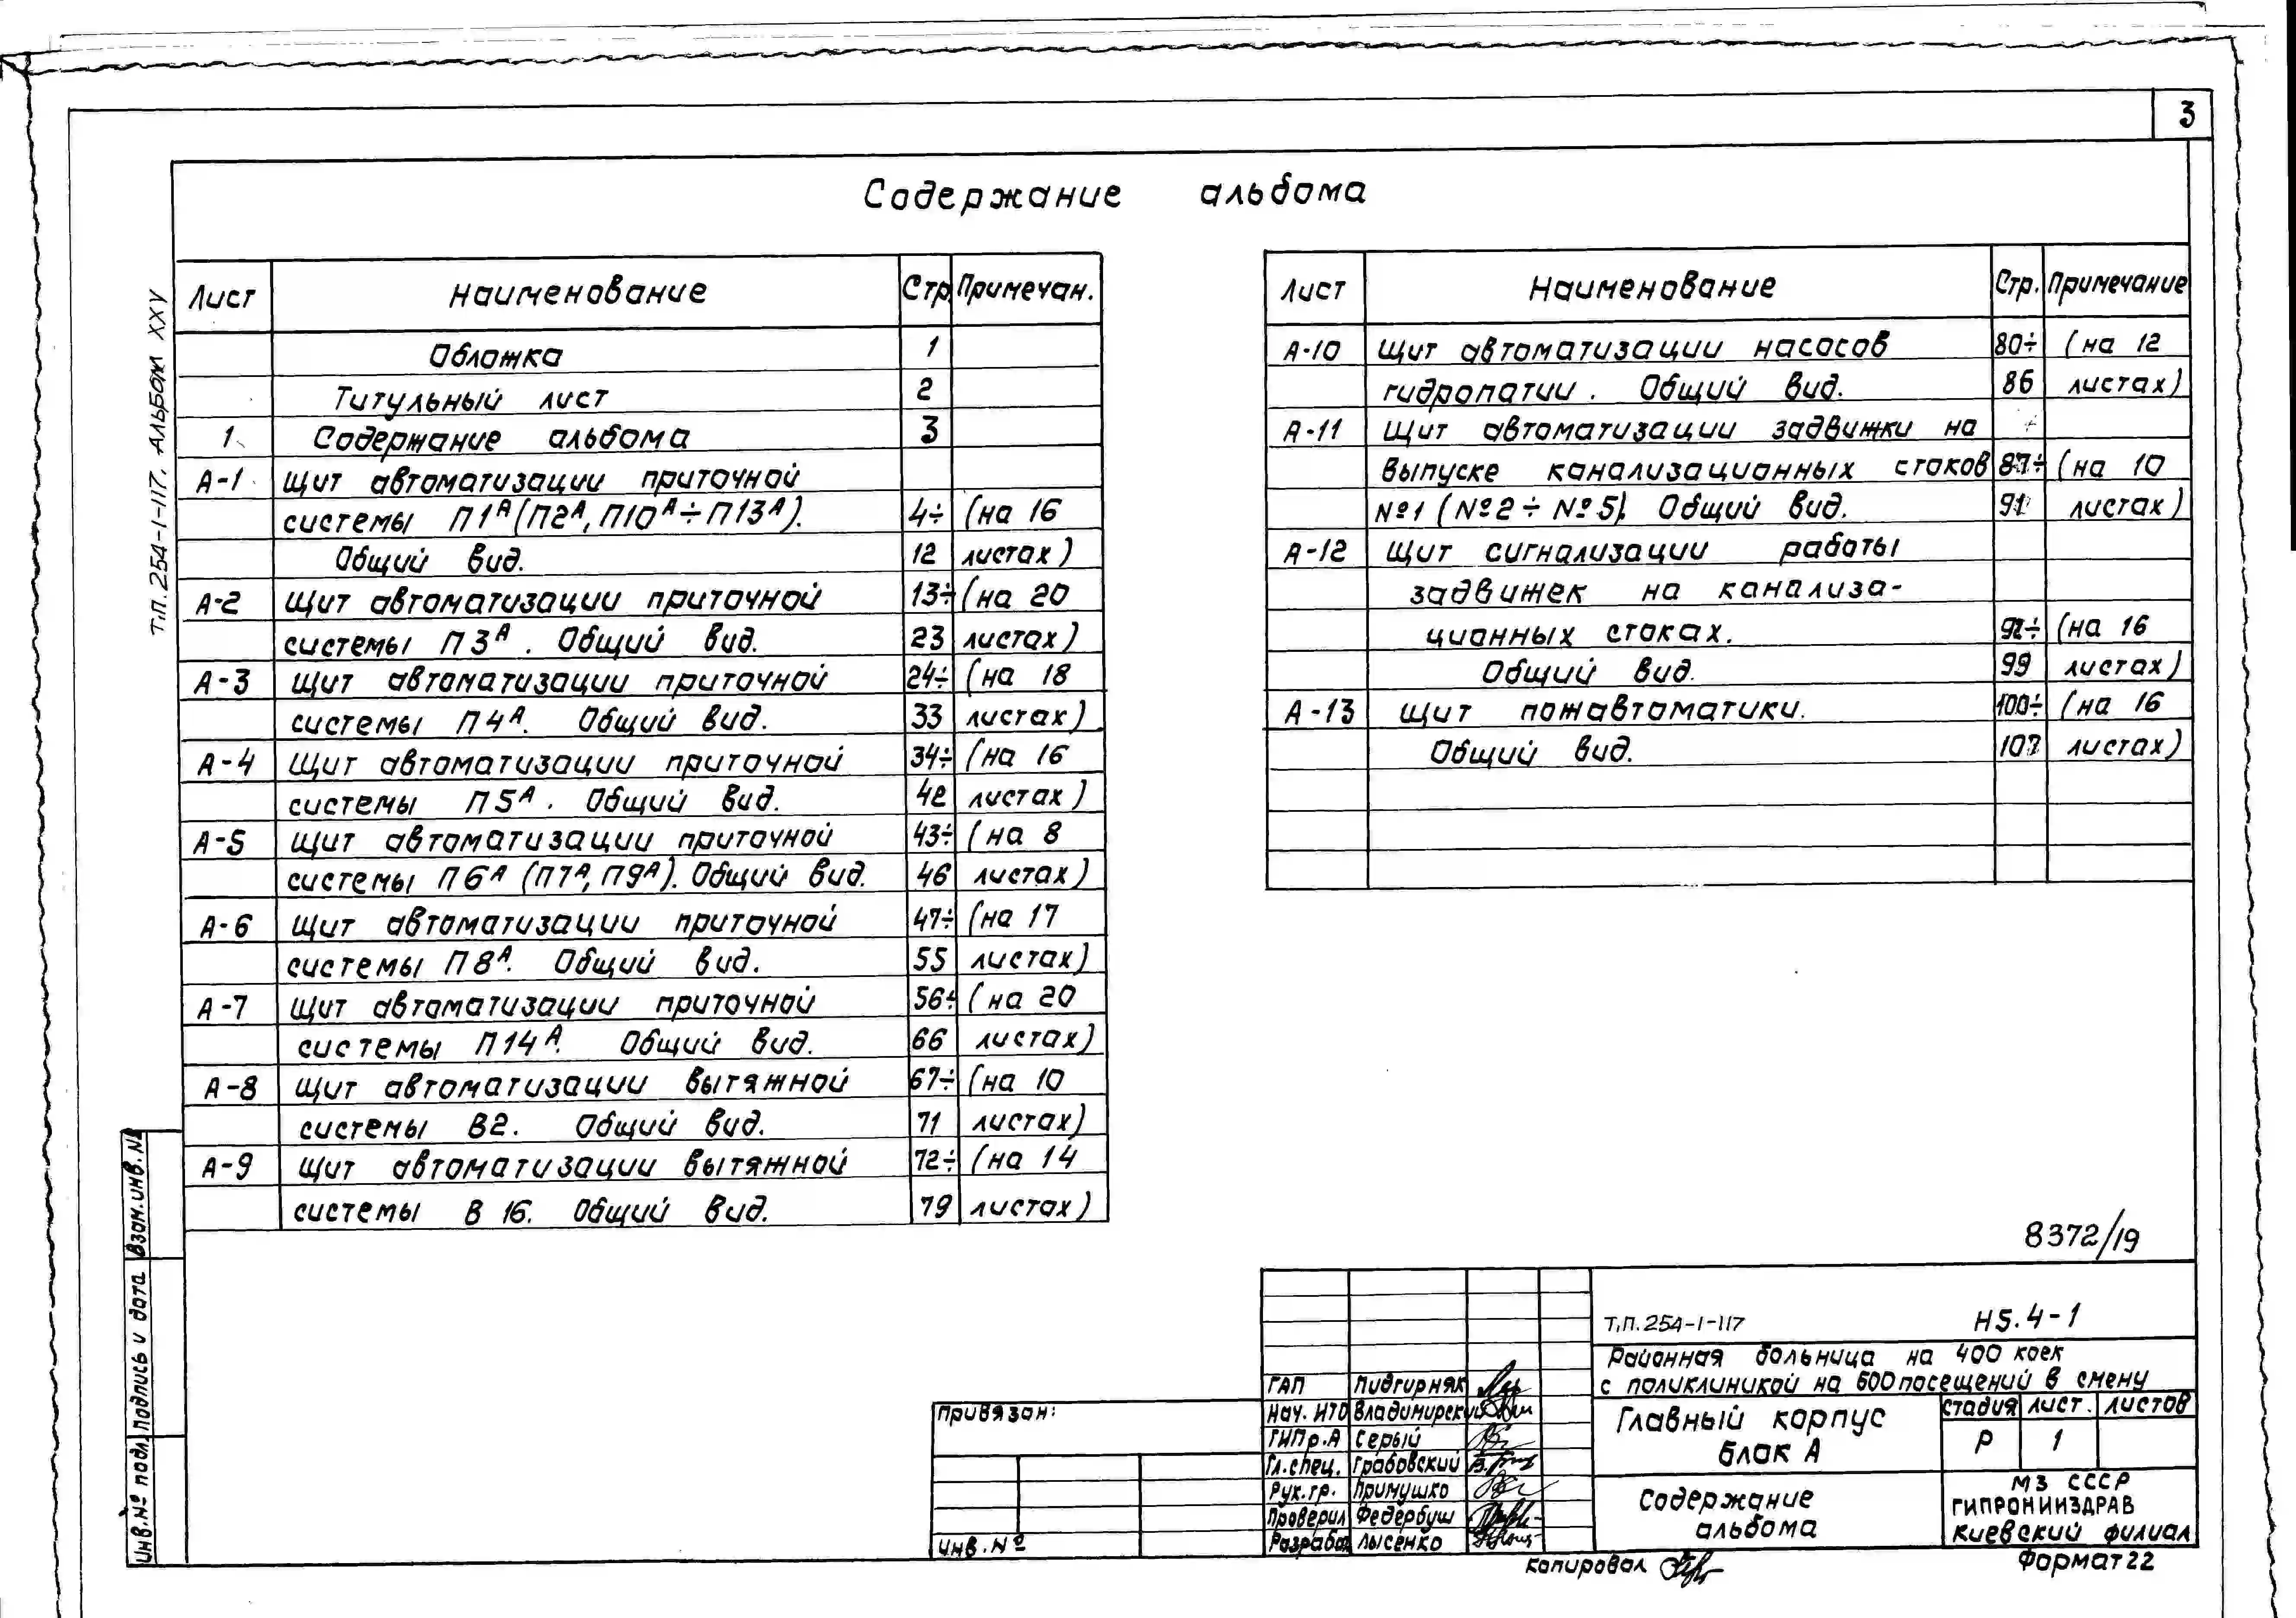 3
Содержание альбома
Т.П. 254-1-117. АЛЬБОМ XXV
Лист Наименование Стр. Примечан.
Обложка 1
Титульный лист 2
1 Содержание альбома 3
А-1 Щит автоматизации приточной
системы П1А (П2А, П10А÷П13А). 4÷ (на 16
Общий вид. 12 листах)
А-2 Щит автоматизации приточной 13÷ (на 20
системы П3А. Общий вид. 23 листах)
А-3 Щит автоматизации приточной 24÷ (на 18
системы П4А. Общий вид. 33 листах)
А-4 Щит автоматизации приточной 34÷ (на 16
системы П5А. Общий вид. 42 листах)
А-5 Щит автоматизации приточной 43÷ (на 8
системы П6А (П7А, П9А). Общий вид. 46 листах)
А-6 Щит автоматизации приточной 47÷ (на 17
системы П8А. Общий вид. 55 листах)
А-7 Щит автоматизации приточной 56÷ (на 20
системы П14А. Общий вид. 66 листах)
А-8 Щит автоматизации вытяжной 67÷ (на 10
системы В2. Общий вид. 71 листах)
А-9 Щит автоматизации вытяжной 72÷ (на 14
системы В 16. Общий вид. 79 листах)
Лист Наименование Стр. Примечание
А-10 Щит автоматизации насосов 80÷ (на 12
гидропатии. Общий вид. 86 листах)
А-11 Щит автоматизации задвижки на
выпуске канализационных стоков 87÷ (на 10
№1 (№2÷№5). Общий вид. 91 листах)
А-12 Щит сигнализации работы
задвижек на канализа-
ционных стоках. 92÷ (на 16
Общий вид. 99 листах)
А-13 Щит пожавтоматики. 100÷ (на 16
Общий вид. 107 листах)
8372/19
Т.П. 254-1-117 Н5.4-1
Районная больница на 400 коек
с поликлиникой на 600 посещений в смену
Главный корпус
Блок А
стадия лист. листов
Р 1
Содержание
альбома
МЗ СССР
ГИПРОНИИЗДРАВ
Киевский филиал
ГАП Пидгирняк
Нач. ИТО Владимирский
ГИПр.А Серый
Гл.спец. Грабовский
Рук.гр. Примушко
Проверил Федербуш
Разработ Лысенко
Привязан:
Инв.№
Копировал
Формат 22
Взам.инв.№
Подпись и дата
Инв.№ подл.